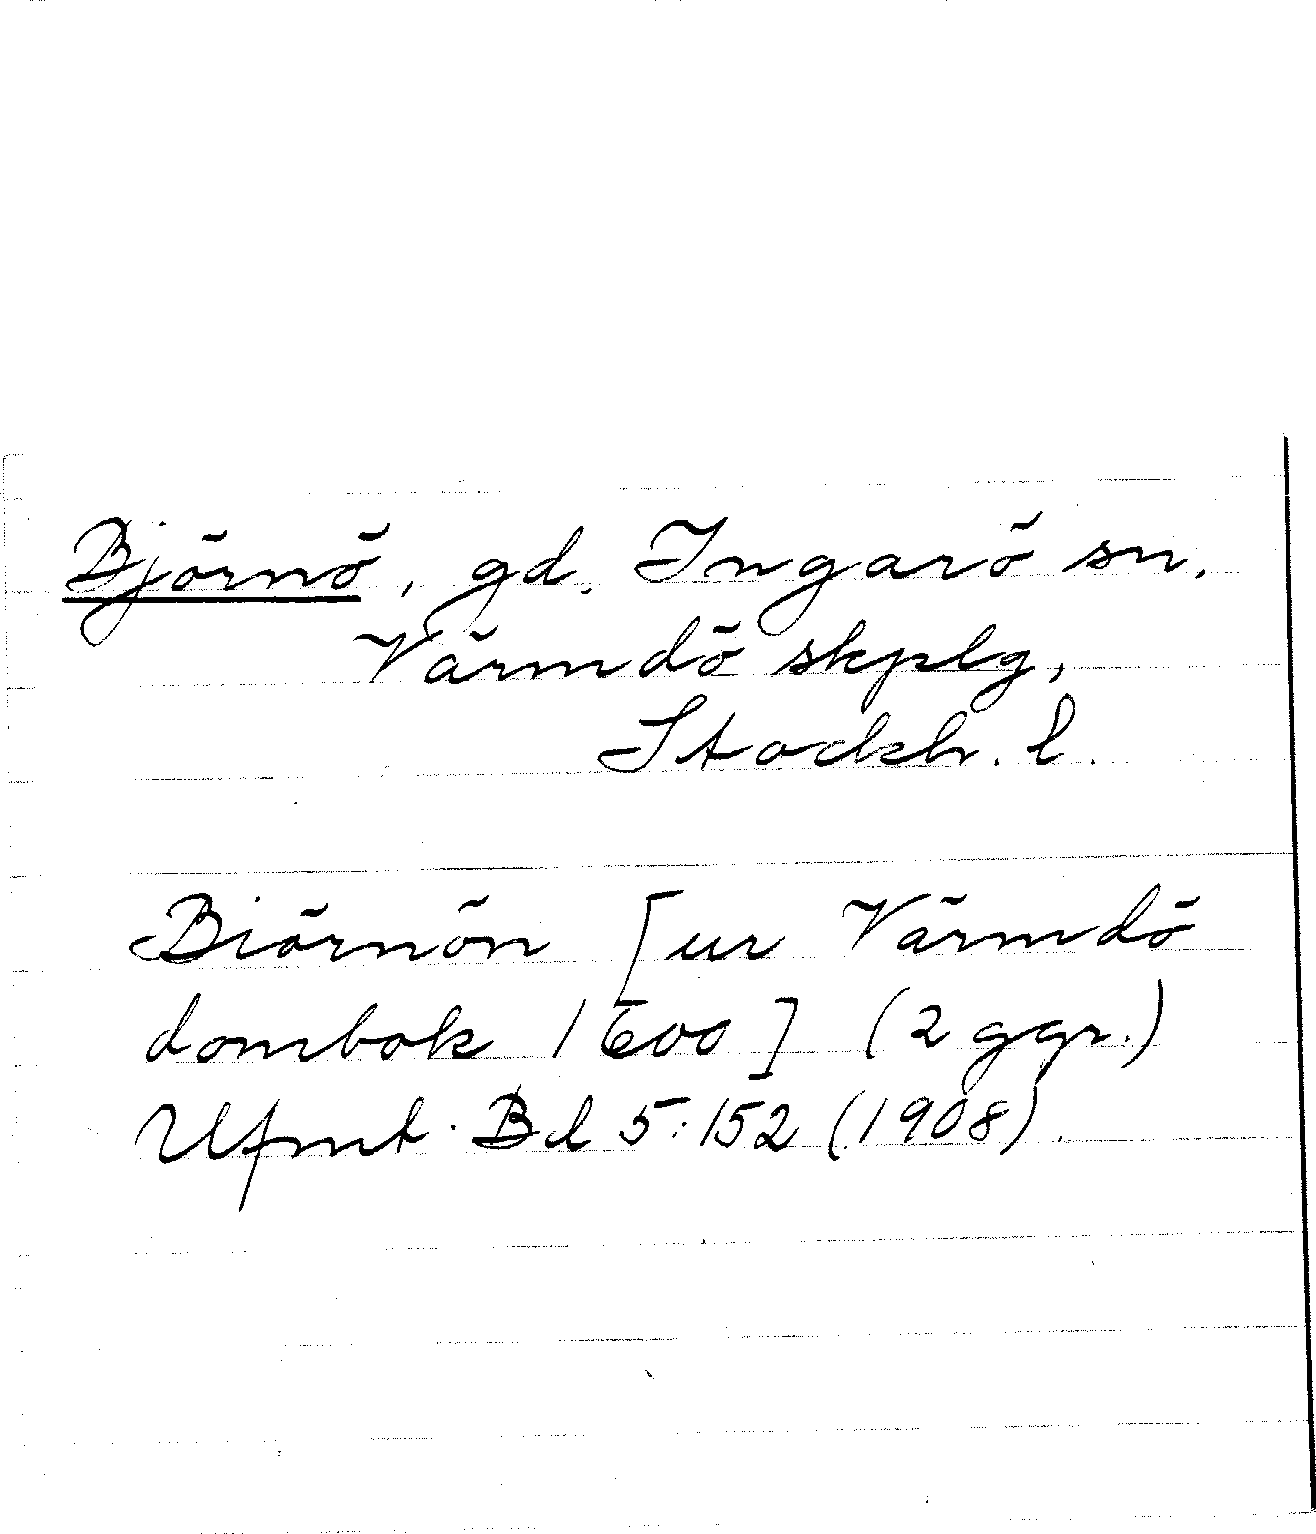 Björnö, gd. Ingarö sn.
Värmdö skplg,
Stockh. l.
Biörnön [ur Värmdö
dombok 1600] (2 ggr.)
Ufmt. Bd 5:152 (1908).